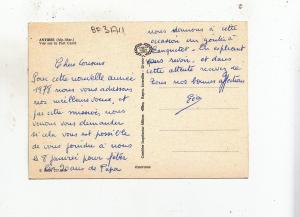 ANTIBES (Alp.-Mar.)
Vue sur le Fort Carré
Chers cousins
Pour cette nouvelle année
1978 nous vous adressons
nos meilleurs voeux, et
par cette missive, nous
venons vous demander si
cela vous est possible
de vous joindre à nous
le 8 janvier pour fêter
les 70 ans de Papa
nous donnons à cette
occasion un goûter à
En espérant
vous revoir, et dans
cette attente recevez de
nous nos bonnes affections